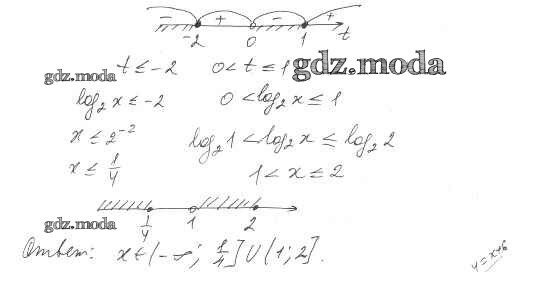 - + - +
-2 0 1 t
t ≤ -2 0 < t ≤ 1 gdz.moda
gdz.moda
log₂ x ≤ -2 0 < log₂ x ≤ 1
x ≤ 2⁻² log₂ 1 < log₂ x ≤ log₂ 2
x ≤ 1/4 1 < x ≤ 2
gdz.moda 1/4 1 2
Ответ: x ∈ (-∞; 1/4] ∪ (1; 2].